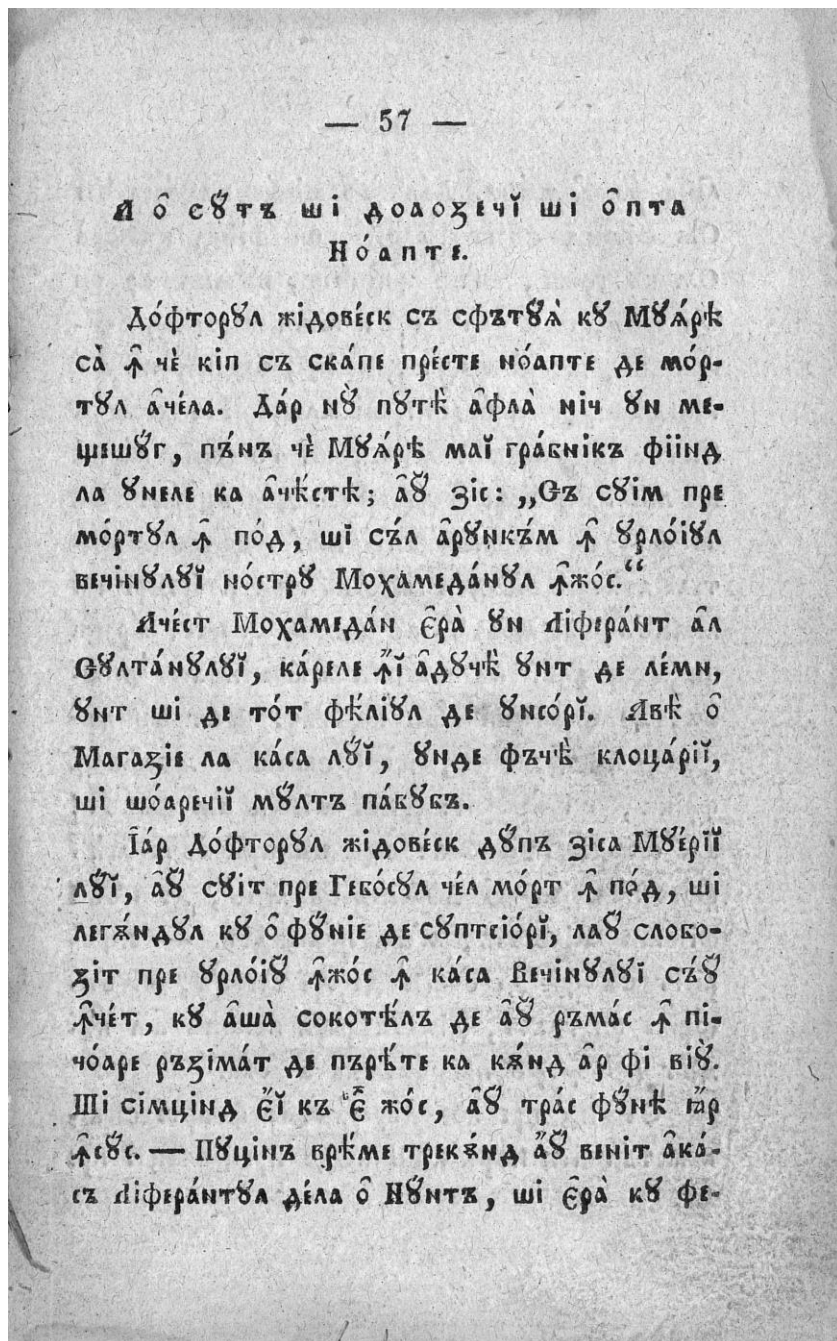 — 57 —
А о҆ сꙋ́тъ ші доаозечй ші о҆пта
Но́апте.
До́фторꙋл жідове́ск съ сфътꙋѧ̀ кꙋ Мꙋѧ́рѣ
са̀ ꙟ҆ чѐ кіп съ ска́пе пре́сте но́апте де мо́р-
тꙋл а҆че́ла. Да́р нꙋ̀ пꙋтѣ̀ а҆фла̀ ніч ꙋн ме-
щешꙋ́г, пѫ́нъ чѐ Мꙋѧ́рѣ май гра́бнікъ фіінд
ла ꙋнеле ка а҆чѣ́стѣ; а҆ꙋ̆ зіс: „Съ сꙋім пре
мо́ртꙋл ꙟ҆ по́д, ші съ́л а҆рꙋнкъ́м ꙟ҆ ꙋрло́іꙋл
вечінꙋлꙋй но́стрꙋ Мохамеда́нꙋл ꙟ҆жо́с.“
Аче́ст Мохамеда́н є҆ра̀ ꙋн Ліфера́нт а҆л
Сꙋлта́нꙋлꙋй, ка́реле ꙟ҆й а҆дꙋчѣ̀ ꙋнт де ле́мн,
ꙋнт ші де то́т фѣ́ліꙋл де ꙋнсо́рй. Авѣ̀ о҆
Магазіе ла ка́са лꙋ́й, ꙋнде фъчѣ̀ клоца́рій,
ші шо́аречій мꙋ́лтъ па́гꙋбъ.
І҆а́р До́фторꙋл жідове́ск дꙋ́пъ зіса Мꙋе́рій
лꙋ́й, а҆ꙋ̆ сꙋіт пре Гебо́сꙋл че́л мо́рт ꙟ҆ по́д, ші
легѫ́ндꙋл кꙋ о҆ фꙋ́ніе де сꙋптсіо́рй, лаꙋ̆ слобо-
зіт пре ꙋрло́іꙋ̆ ꙟ҆жо́с ꙟ҆ ка́са Вечінꙋлꙋй съ́ꙋ̆
ꙟ҆че́т, кꙋ а҆ша̀ сокотѣ́лъ де а҆ꙋ̆ ръма́с ꙟ҆ пі-
чо́аре ръзіма́т де пърѣ́те ка кѫ́нд а҆р фі віꙋ̆.
Ші сімцінд є҆й къ є҆ жо́с, а҆ꙋ̆ тра́с фꙋ́нѣ ꙗ҆р
ꙟ҆сꙋ́с. — Пꙋцінъ врѣ́ме трекѫ́нд а҆ꙋ̆ веніт а҆ка́-
съ Ліфера́нтꙋл де́ла о҆ Нꙋ́нтъ, ші є҆ра̀ кꙋ фе-